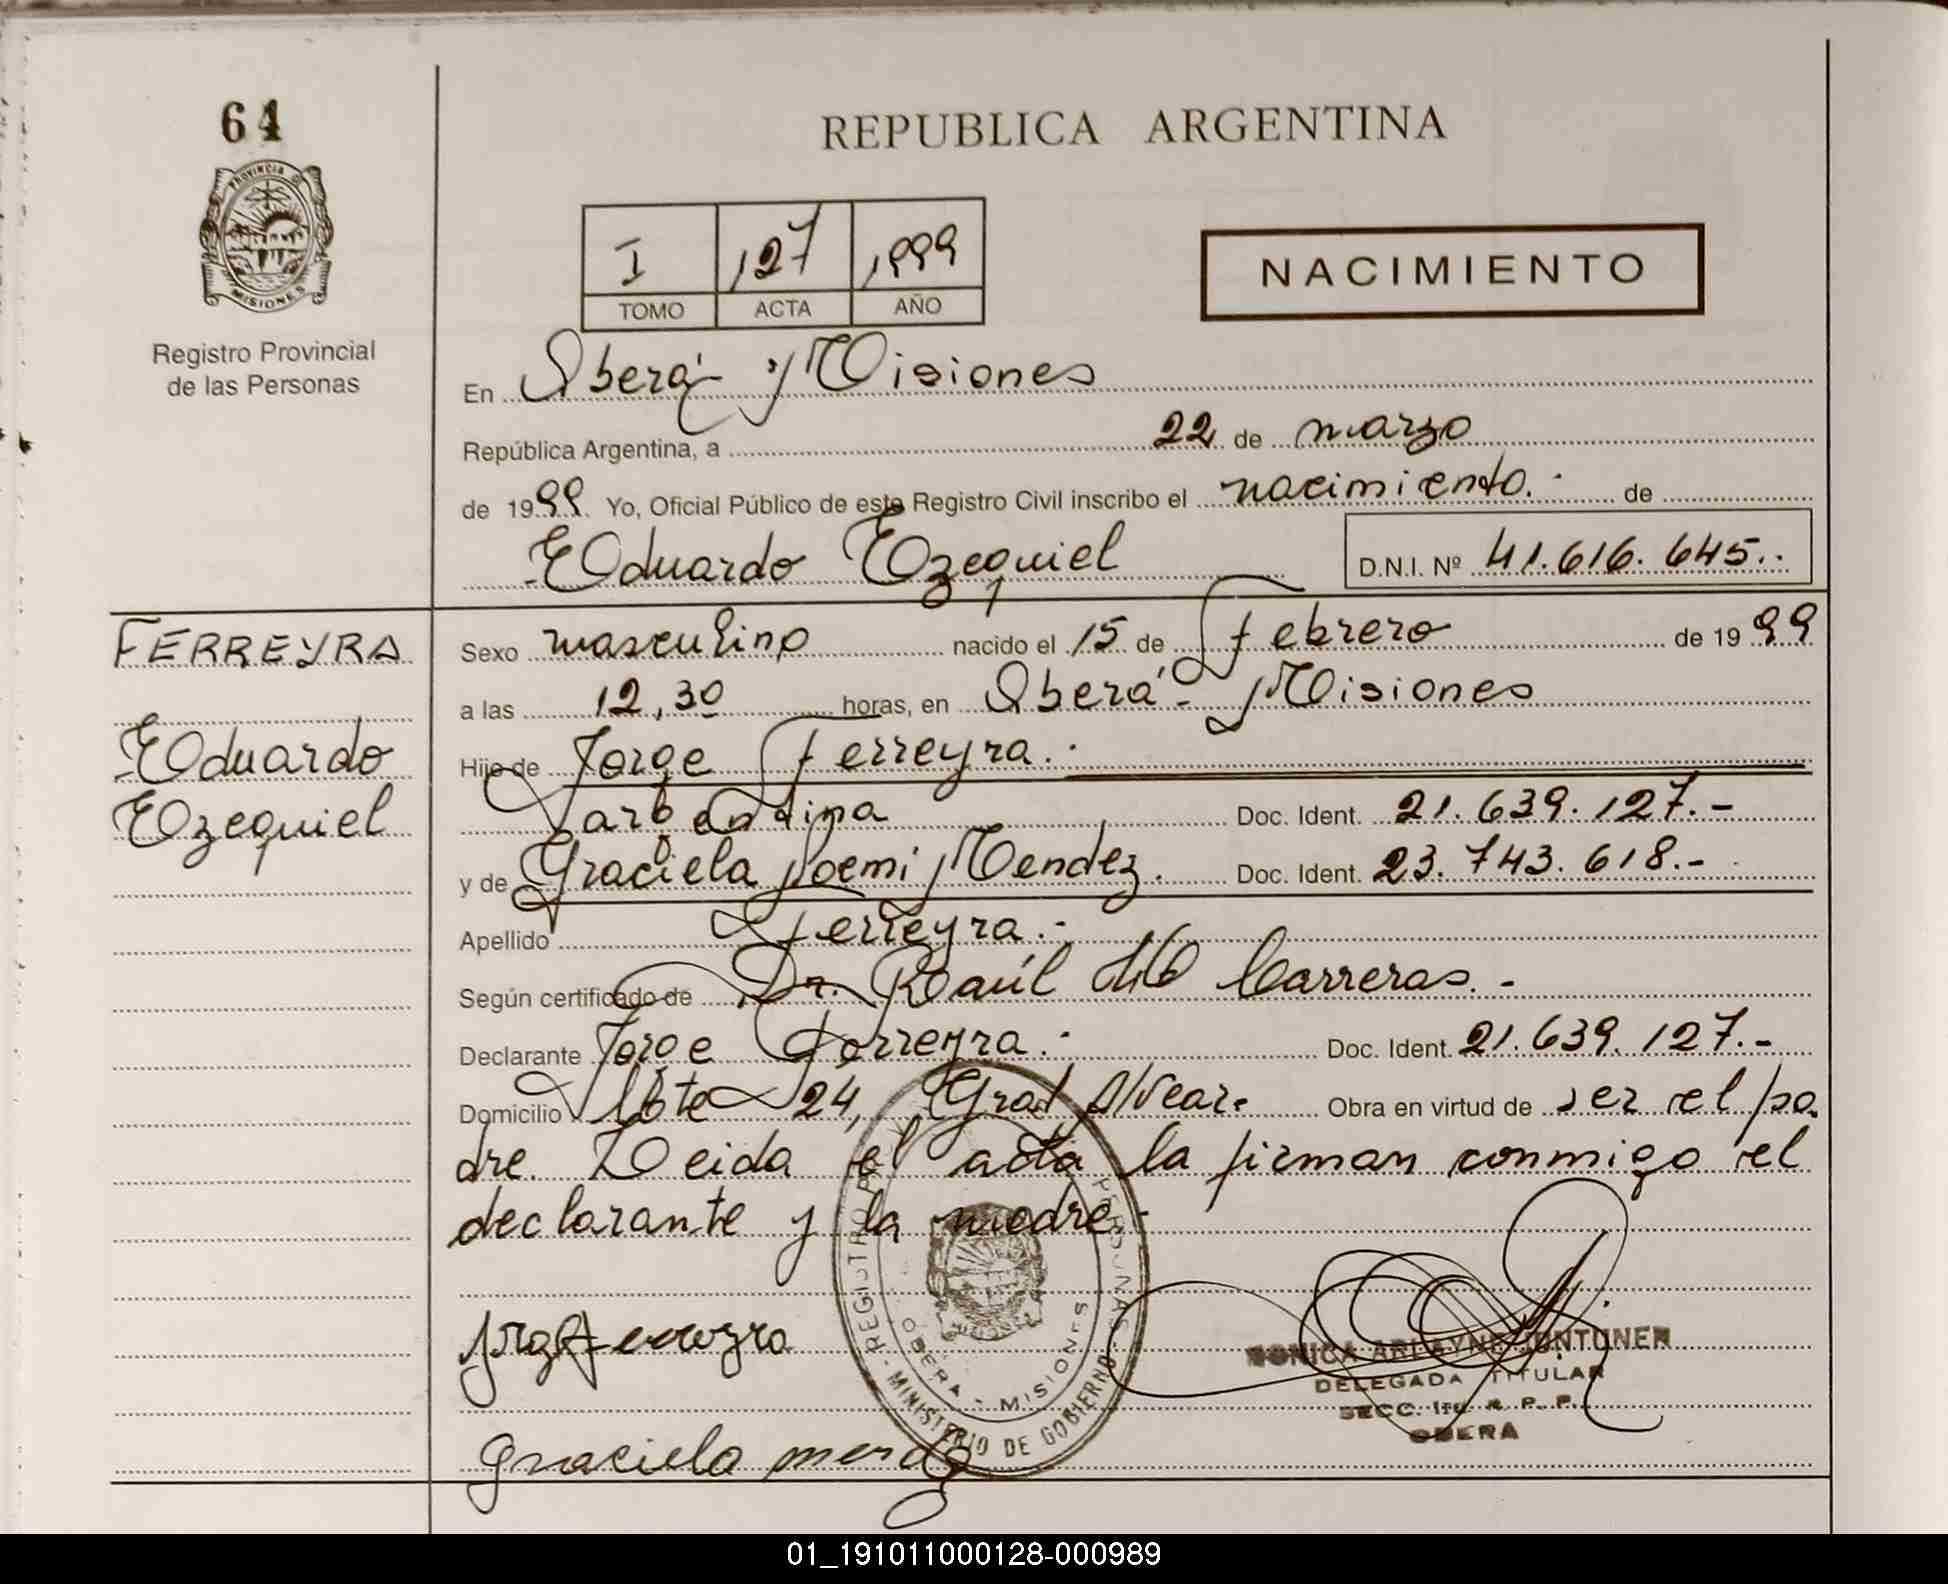 64
REPUBLICA ARGENTINA
PROVINCIA D MISIONES
Registro Provincial
de las Personas
I 127 1999
TOMO ACTA AÑO
NACIMIENTO
En Oberá - Misiones
República Argentina, a 22 de marzo
de 1999. Yo, Oficial Público de este Registro Civil inscribo el nacimiento.- de
Eduardo Ezequiel D.N.I. Nº 41.616.645.-
FERREYRA
Eduardo
Ezequiel
Sexo masculino nacido el 15 de Febrero de 1999
a las 12,30 horas, en Oberá - Misiones
Hijo de Jorge Ferreyra.-
Doc. Ident. 21.639.127.-
y de Graciela Noemi Mendez. Doc. Ident. 23.743.618.-
Apellido Ferreyra.-
Según certificado de Dr. Raúl Carreras.-
Declarante Jorge Ferreyra.- Doc. Ident. 21.639.127.-
Domicilio Lote 24, Gral Alvear. Obra en virtud de ser el pa
dre. Leida el acta la firman conmigo el
declarante y la madre.-
REGISTRO PERSONAS - MINISTERIO DE GOBIERNO
OBERA - MISIONES
Jorge Ferreyra
DELEGADA TITULAR
SECC. R. P. P.
OBERA
Graciela Mendez
01_191011000128-000989